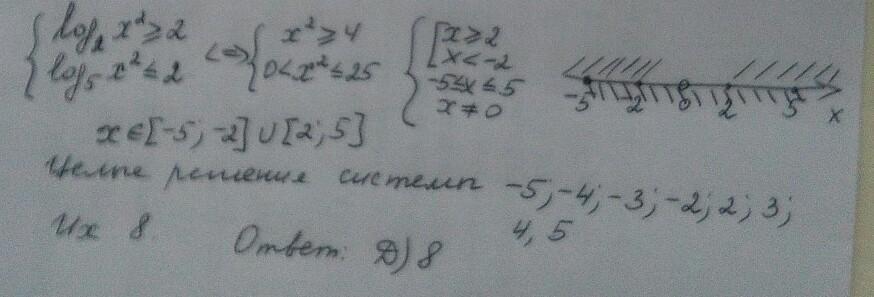 { log₂ x² ≥ 2 <=> { x² ≥ 4 { [ x ≥ 2
log₅ x² ≤ 2 0 < x² ≤ 25 x < -2
-5 ≤ x ≤ 5
x ≠ 0
-5 -2 0 2 5 x
x ∈ [-5; -2] ∪ [2; 5]
Целые решения системы -5; -4; -3; -2; 2; 3;
4, 5
Их 8.
Ответ: Д) 8